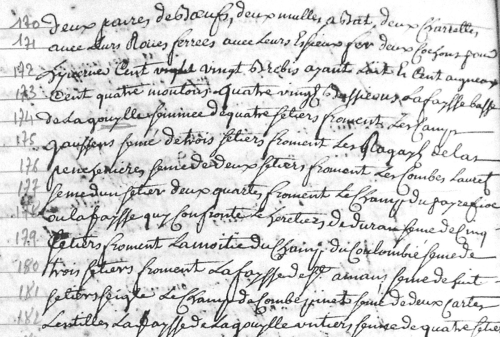 170 deux paires de Bœufs, deux mulles a Bat, deux Charettes
171 avec leurs Roues ferrees avec leurs Espieus fer deux Cochons pour
172 Cent vingt Brebis ayant Lait et Cent agneaux
173 Cent quatre moutons quatre vingt La faysse basse
174 de La gouylle semince de quatre setiers froment Le Champ
175 semé de trois setiers froment Les de las
176 semé de deux setiers froment Les Combes Lauret
177 seme dun setier deux quartes froment Le Champ du
178 ou La faysse quy Confronte Le heretiers de duran semé de Cinq
179 setiers froment La moitie du Champ du Coulombié seme de
180 trois setiers froment La faysse de St amans seme de huit
181 setiers seigle Le Champ de Combe semé de deux cartes
182 Lentilles La faysse de La gouylle seme de quatre setiers